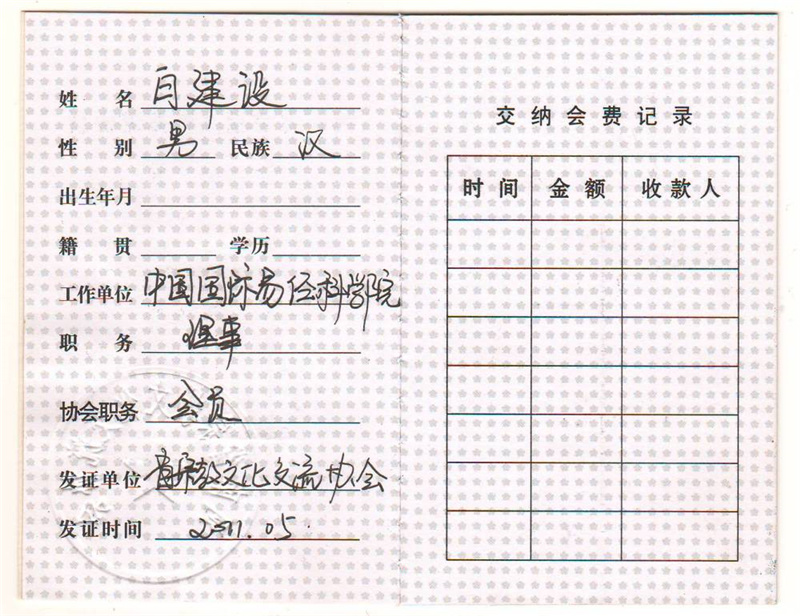 姓 名 闫建设
性 别 男 民族 汉
出生年月
籍 贯 学历
工作单位 中国国际易经科学院
职 务 理事
协会职务 会员
发证单位 文化交流协会
发证时间 2011.05
交纳会费记录
时间 金额 收款人